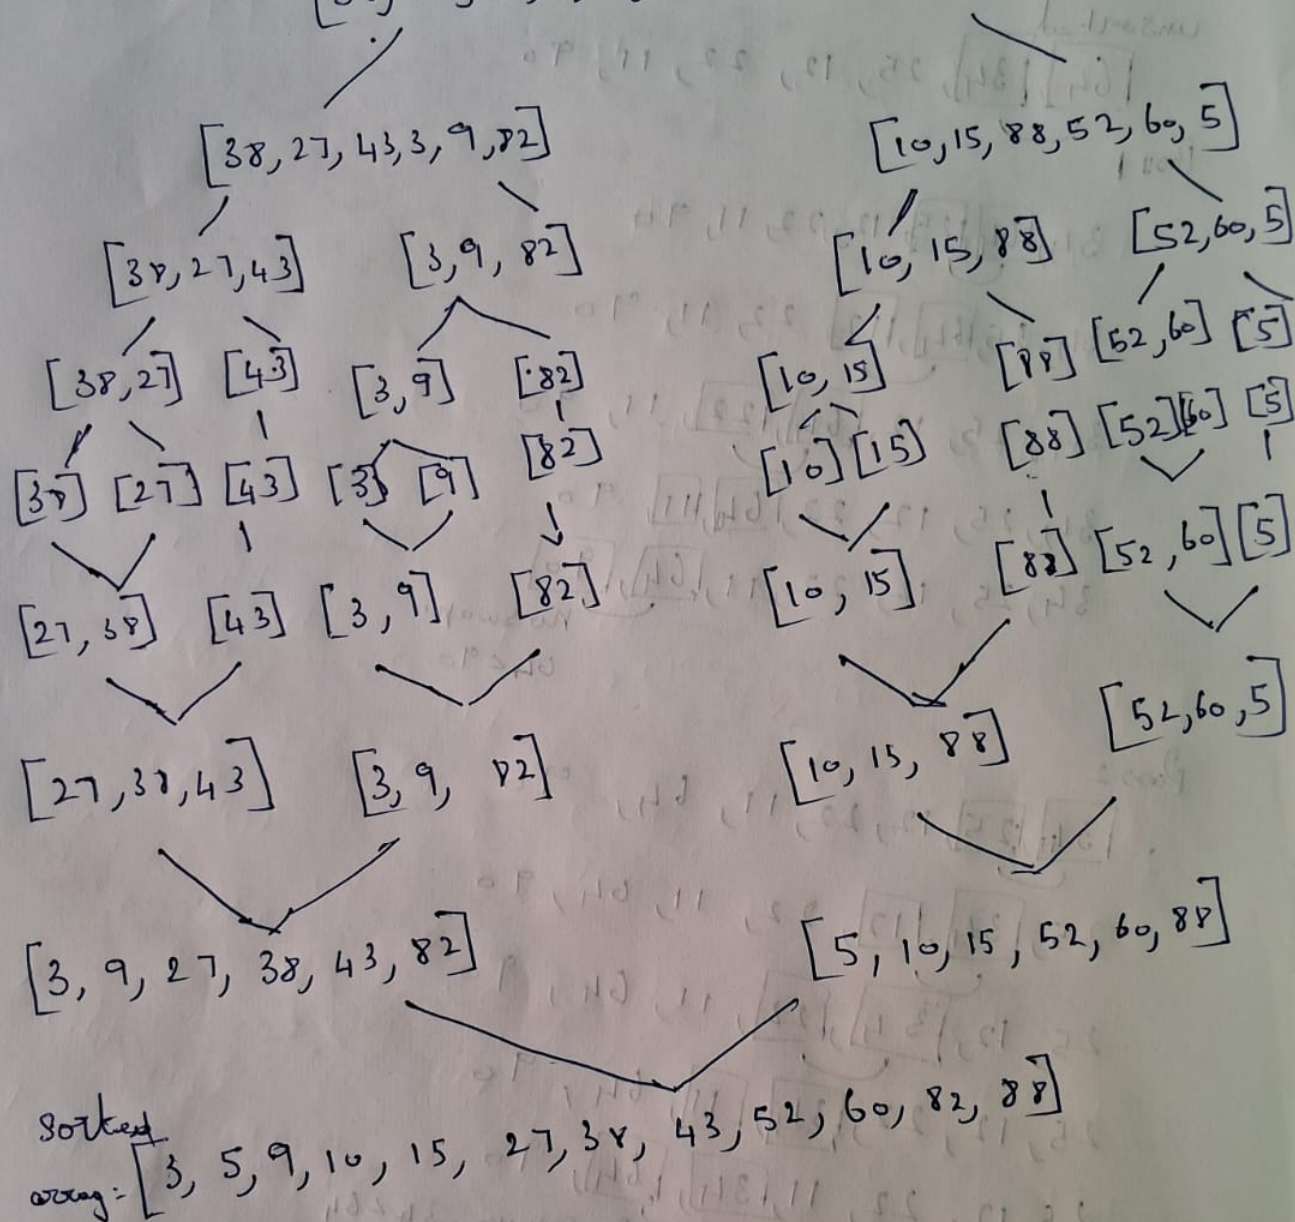 [38, 27, 43, 3, 9, 82] [10, 15, 88, 52, 60, 5]
[38, 27, 43] [3, 9, 82] [10, 15, 88] [52, 60, 5]
[38, 27] [43] [3, 9] [82] [10, 15] [88] [52, 60] [5]
[38] [27] [43] [3] [9] [82] [10] [15] [88] [52] [60] [5]
[27, 38] [43] [3, 9] [82] [10, 15] [88] [52, 60] [5]
[27, 38, 43] [3, 9, 82] [10, 15, 88] [52, 60, 5]
[3, 9, 27, 38, 43, 82] [5, 10, 15, 52, 60, 88]
Sorted
array:- [3, 5, 9, 10, 15, 27, 38, 43, 52, 60, 82, 88]